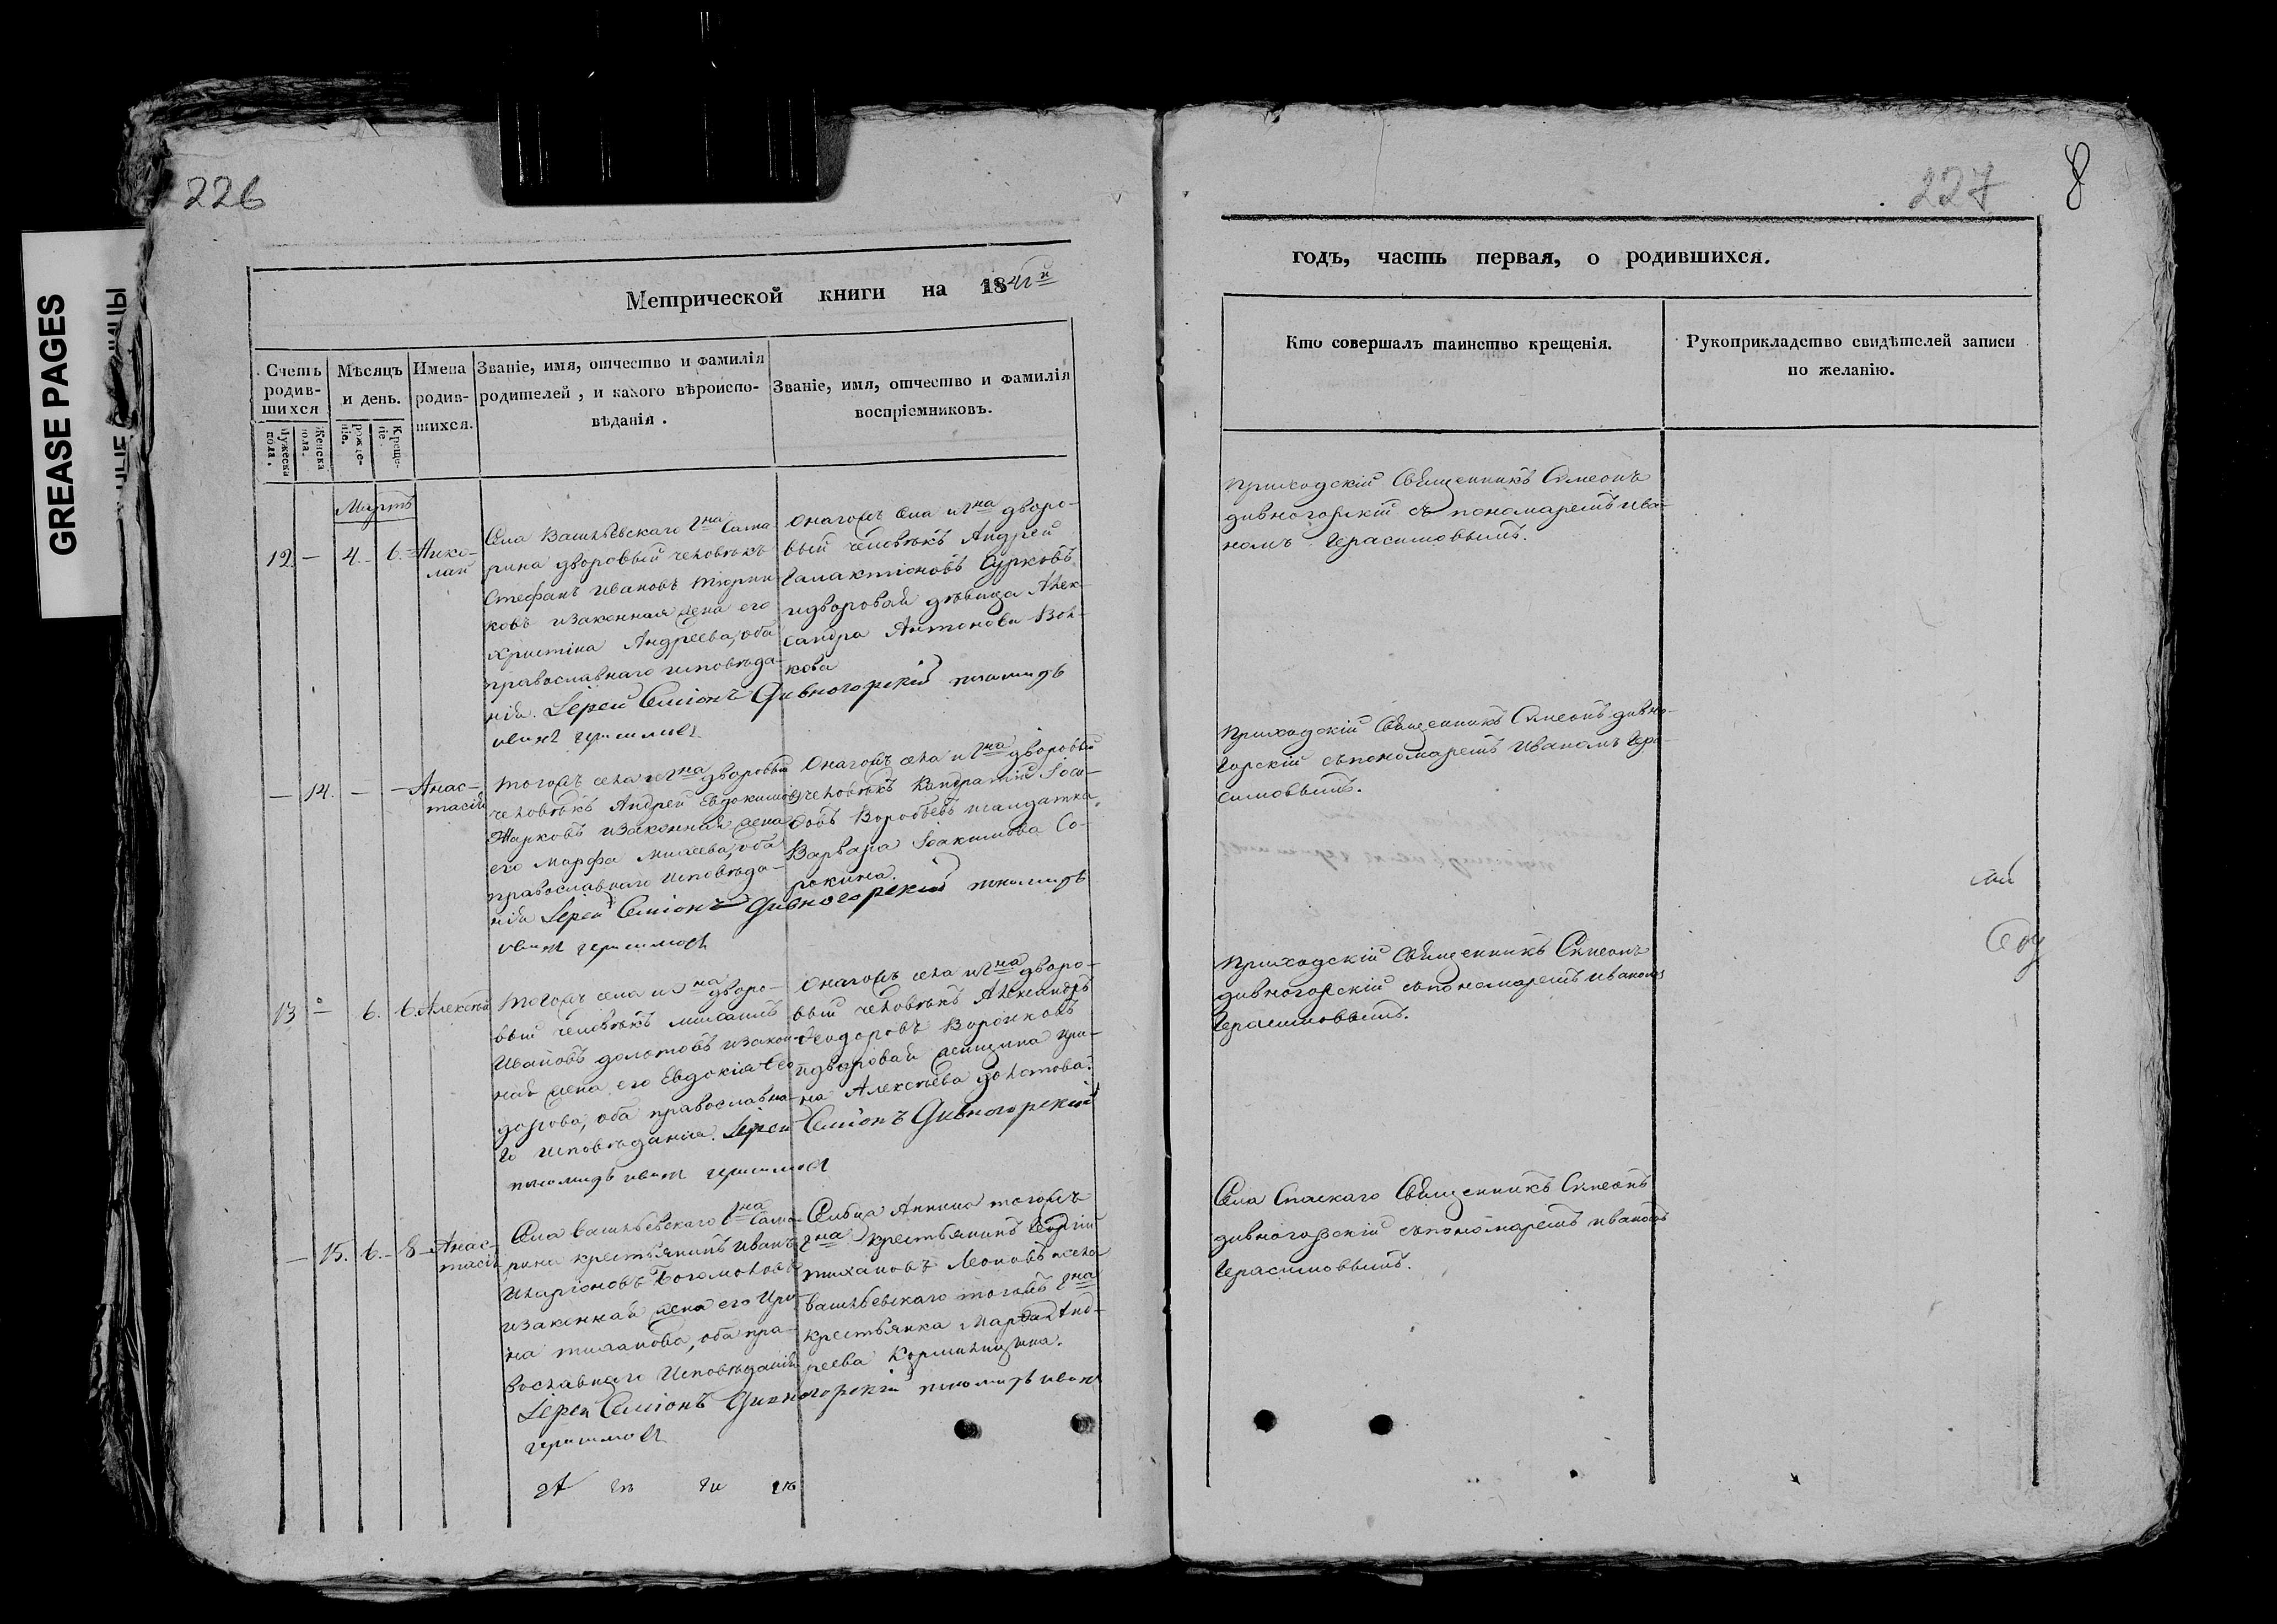 GREASE PAGES
226
Метрической книги на 1841й
Счетъ родив-шихся
Мѣсяцъ и день.
Имена родив-шихся.
Званіе, имя, отчество и фамилія родителей, и какого вѣроиспо-вѣданія.
Званіе, имя, отчество и фамилія воспріемниковъ.
Мужеска пола.
Женска пола.
рожде-ніе.
Креще-ніе.
Мартъ
12. — 4. 6.
Села Васильевскаго Гна Сама-
рина дворовый человѣкъ
Стефанъ Ивановъ Тюрин-
ковъ и законная жена его
Христина Андреева, оба
православнаго исповѣда-
нія. Іерей Симіонъ Дивногорскій пономарь
иванъ герасимовъ
Онагожъ села и Гна дворо-
вый человѣкъ Андрей
Галактіоновъ Сурковъ
и дворовая дѣвица Алек-
сандра Антонова Вол-
кова
— 14. — — Анас-
тасія
Тогожъ села и Гна дворовый
человѣкъ Андрей Евдокимовъ
Жарковъ и законная жена
его Марфа Михеева, оба
православнаго исповѣда-
нія Іерей Симіонъ Дивногорскій пономарь
иванъ герасимовъ
Онагожъ села и Гна дворовый
человѣкъ Кондратій
Воробьевъ и салдатка
Варвара Іоакимова Со-
рокина.
13 — 6. 6. Алексѣй
Тогожъ села и Гна дворо-
вый человѣкъ Михаилъ
Ивановъ Долотовъ и закон-
ная жена его Евдокія Ѳео-
дорова, оба православна-
го исповѣданія. Іерей Симіонъ Дивногорскій
пономарь иванъ герасимовъ
Онагожъ села и Гна дворо-
вый человѣкъ Александръ
Ѳеодоровъ Воронковъ
и дворовая женщина Ири-
на Алексѣева Долотова.
— 15. 6. 8 Анас-
тасія
Села Васильевскаго Гна Сама-
рина крестьянинъ Иванъ
Иларіоновъ Богомоловъ
и законная жена его Ири-
на тиханова, оба пра-
вославнаго исповѣданія
Іерей Симіонъ Дивногорскій пономарь иванъ
герасимовъ
Сельца Аннина тогожъ
Гна крестьянинъ Георгій
тихановъ Леоновъ и села
васильевскаго тогожъ Гна
крестьянка Марѳа Анд-
реева
227
8
годъ, часть первая, о родившихся.
Кто совершалъ таинство крещенія.
Рукоприкладство свидѣтелей записи по желанію.
Приходскій Священникъ Симеонъ
дивногорскій съ пономаремъ Ива-
номъ Герасимовымъ.
Приходскій Священникъ Симеонъ дивно-
горскій съ пономаремъ Иваномъ Гера-
симовымъ.
Приходскій Священникъ Симеонъ
дивногорскій съ пономаремъ Иваномъ
Герасимовымъ.
Села Спаскаго Священникъ Симеонъ
дивногорскій съ пономаремъ иваномъ
Герасимовымъ.